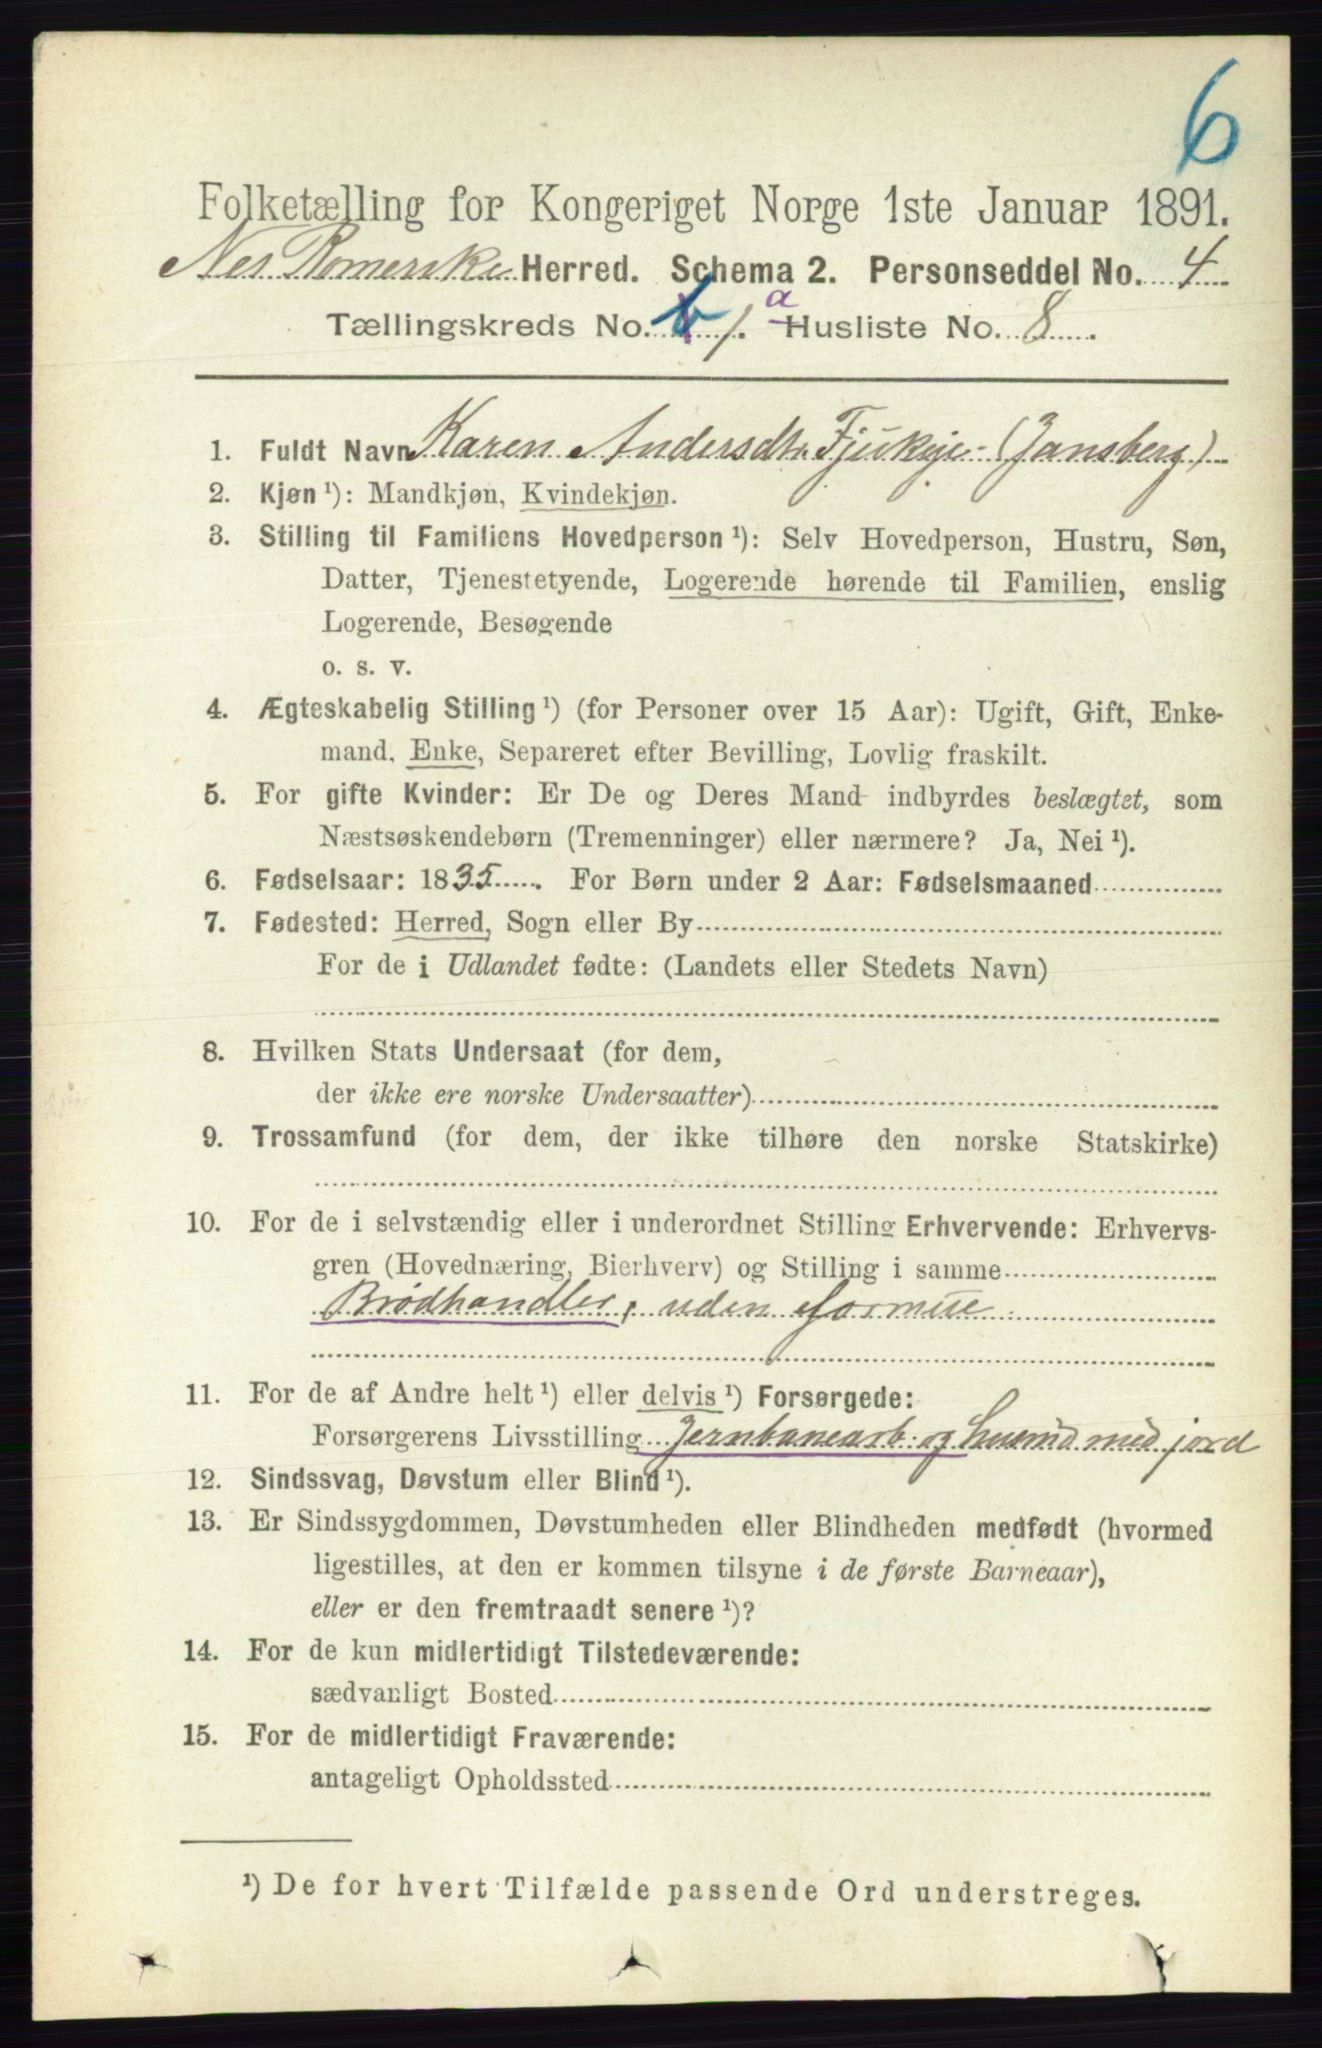 6
Folketælling for Kongeriget Norge 1ste Januar 1891.
Nes Romerike Herred. Schema 2. Personseddel No. 4
Tællingskreds No. 1. a Husliste No. 8
1. Fuldt Navn Karen Andersdtr. (Jansberg)
2. Kjøn ¹): Mandkjøn, Kvindekjøn.
3. Stilling til Familiens Hovedperson ¹): Selv Hovedperson, Hustru, Søn,
Datter, Tjenestetyende, Logerende hørende til Familien, enslig
Logerende, Besøgende
o. s. v.
4. Ægteskabelig Stilling ¹) (for Personer over 15 Aar): Ugift, Gift, Enke-
mand, Enke, Separeret efter Bevilling, Lovlig fraskilt.
5. For gifte Kvinder: Er De og Deres Mand indbyrdes beslægtet, som
Næstsøskendebørn (Tremenninger) eller nærmere? Ja, Nei ¹).
6. Fødselsaar: 1835. For Børn under 2 Aar: Fødselsmaaned
7. Fødested: Herred, Sogn eller By
For de i Udlandet fødte: (Landets eller Stedets Navn)
8. Hvilken Stats Undersaat (for dem,
der ikke ere norske Undersaatter)
9. Trossamfund (for dem, der ikke tilhøre den norske Statskirke)
10. For de i selvstændig eller i underordnet Stilling Erhvervende: Erhvervs-
gren (Hovednæring, Bierhverv) og Stilling i samme
Brødhandler, uden formue
11. For de af Andre helt ¹) eller delvis ¹) Forsørgede:
Forsørgerens Livsstilling Jernbanearb. og husmd med jord
12. Sindssvag, Døvstum eller Blind ¹).
13. Er Sindssygdommen, Døvstumheden eller Blindheden medfødt (hvormed
ligestilles, at den er kommen tilsyne i de første Barneaar),
eller er den fremtraadt senere ¹)?
14. For de kun midlertidigt Tilstedeværende:
sædvanligt Bosted
15. For de midlertidigt Fraværende:
antageligt Opholdssted
¹) De for hvert Tilfælde passende Ord understreges.